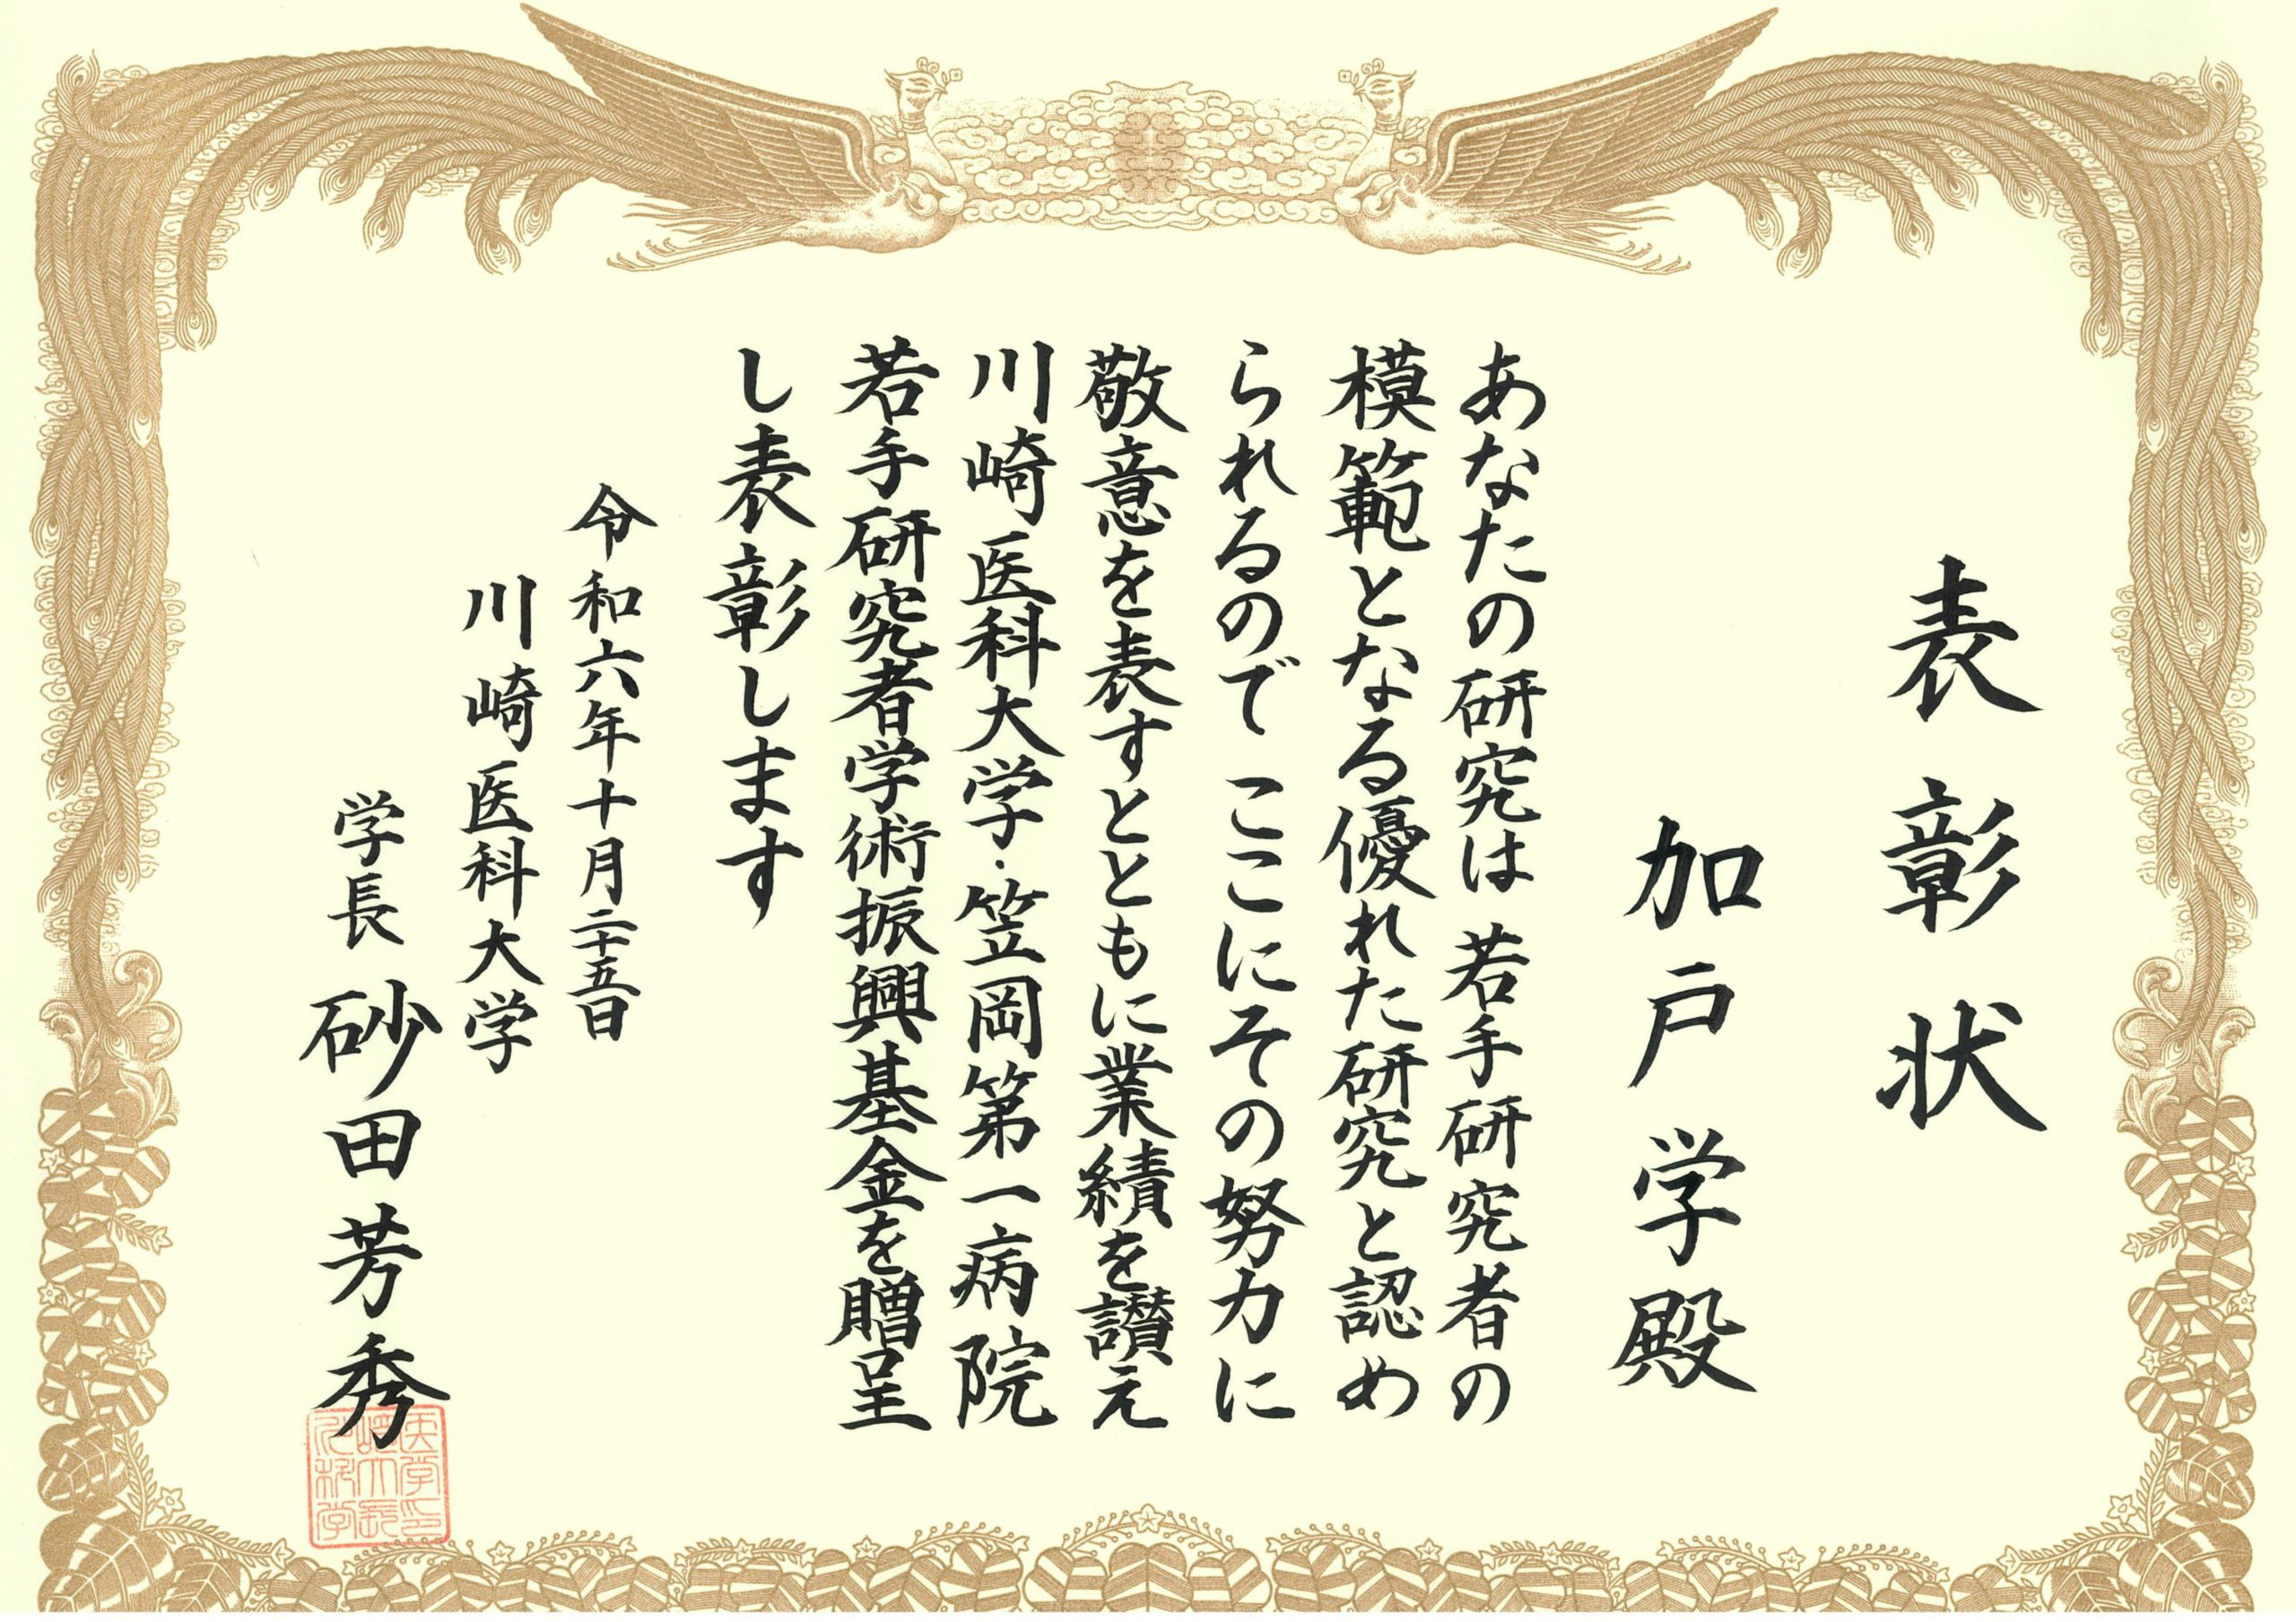 表彰状
加戸学殿
あなたの研究は 若手研究者の
模範となる優れた研究と認め
られるので ここにその努力に
敬意を表すとともに業績を讃え
川崎医科大学・笠岡第一病院
若手研究者学術振興基金を贈呈
し表彰します
令和六年十月二十五日
川崎医科大学
学長 砂田芳秀